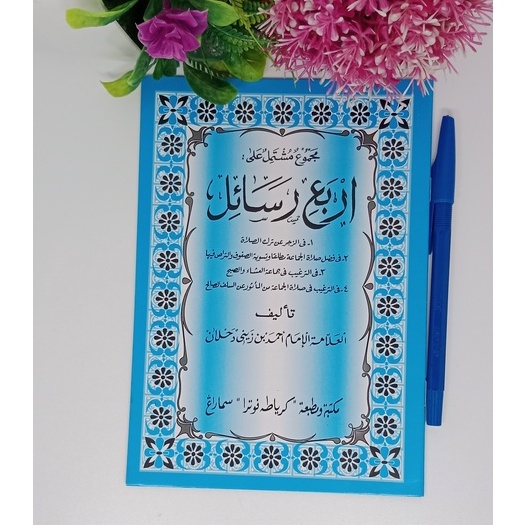 مجموع مشتمل على:
أربع رسائل
١- فى الزجر عن ترك الصلاة
٢- فى فضل صلاة الجماعة مطلقا وتسوية الصفوف والتراص فيها
٣- فى الترغيب فى جماعة العشاء والصبح
٤- فى الترغيب فى صلاة الجماعة من المأثور عن السلف الصالح
تأليف
العلامة الإمام أحمد بن زينى دحلان
مكتبة ومطبعة "كرياطه فوترا" سماراغ